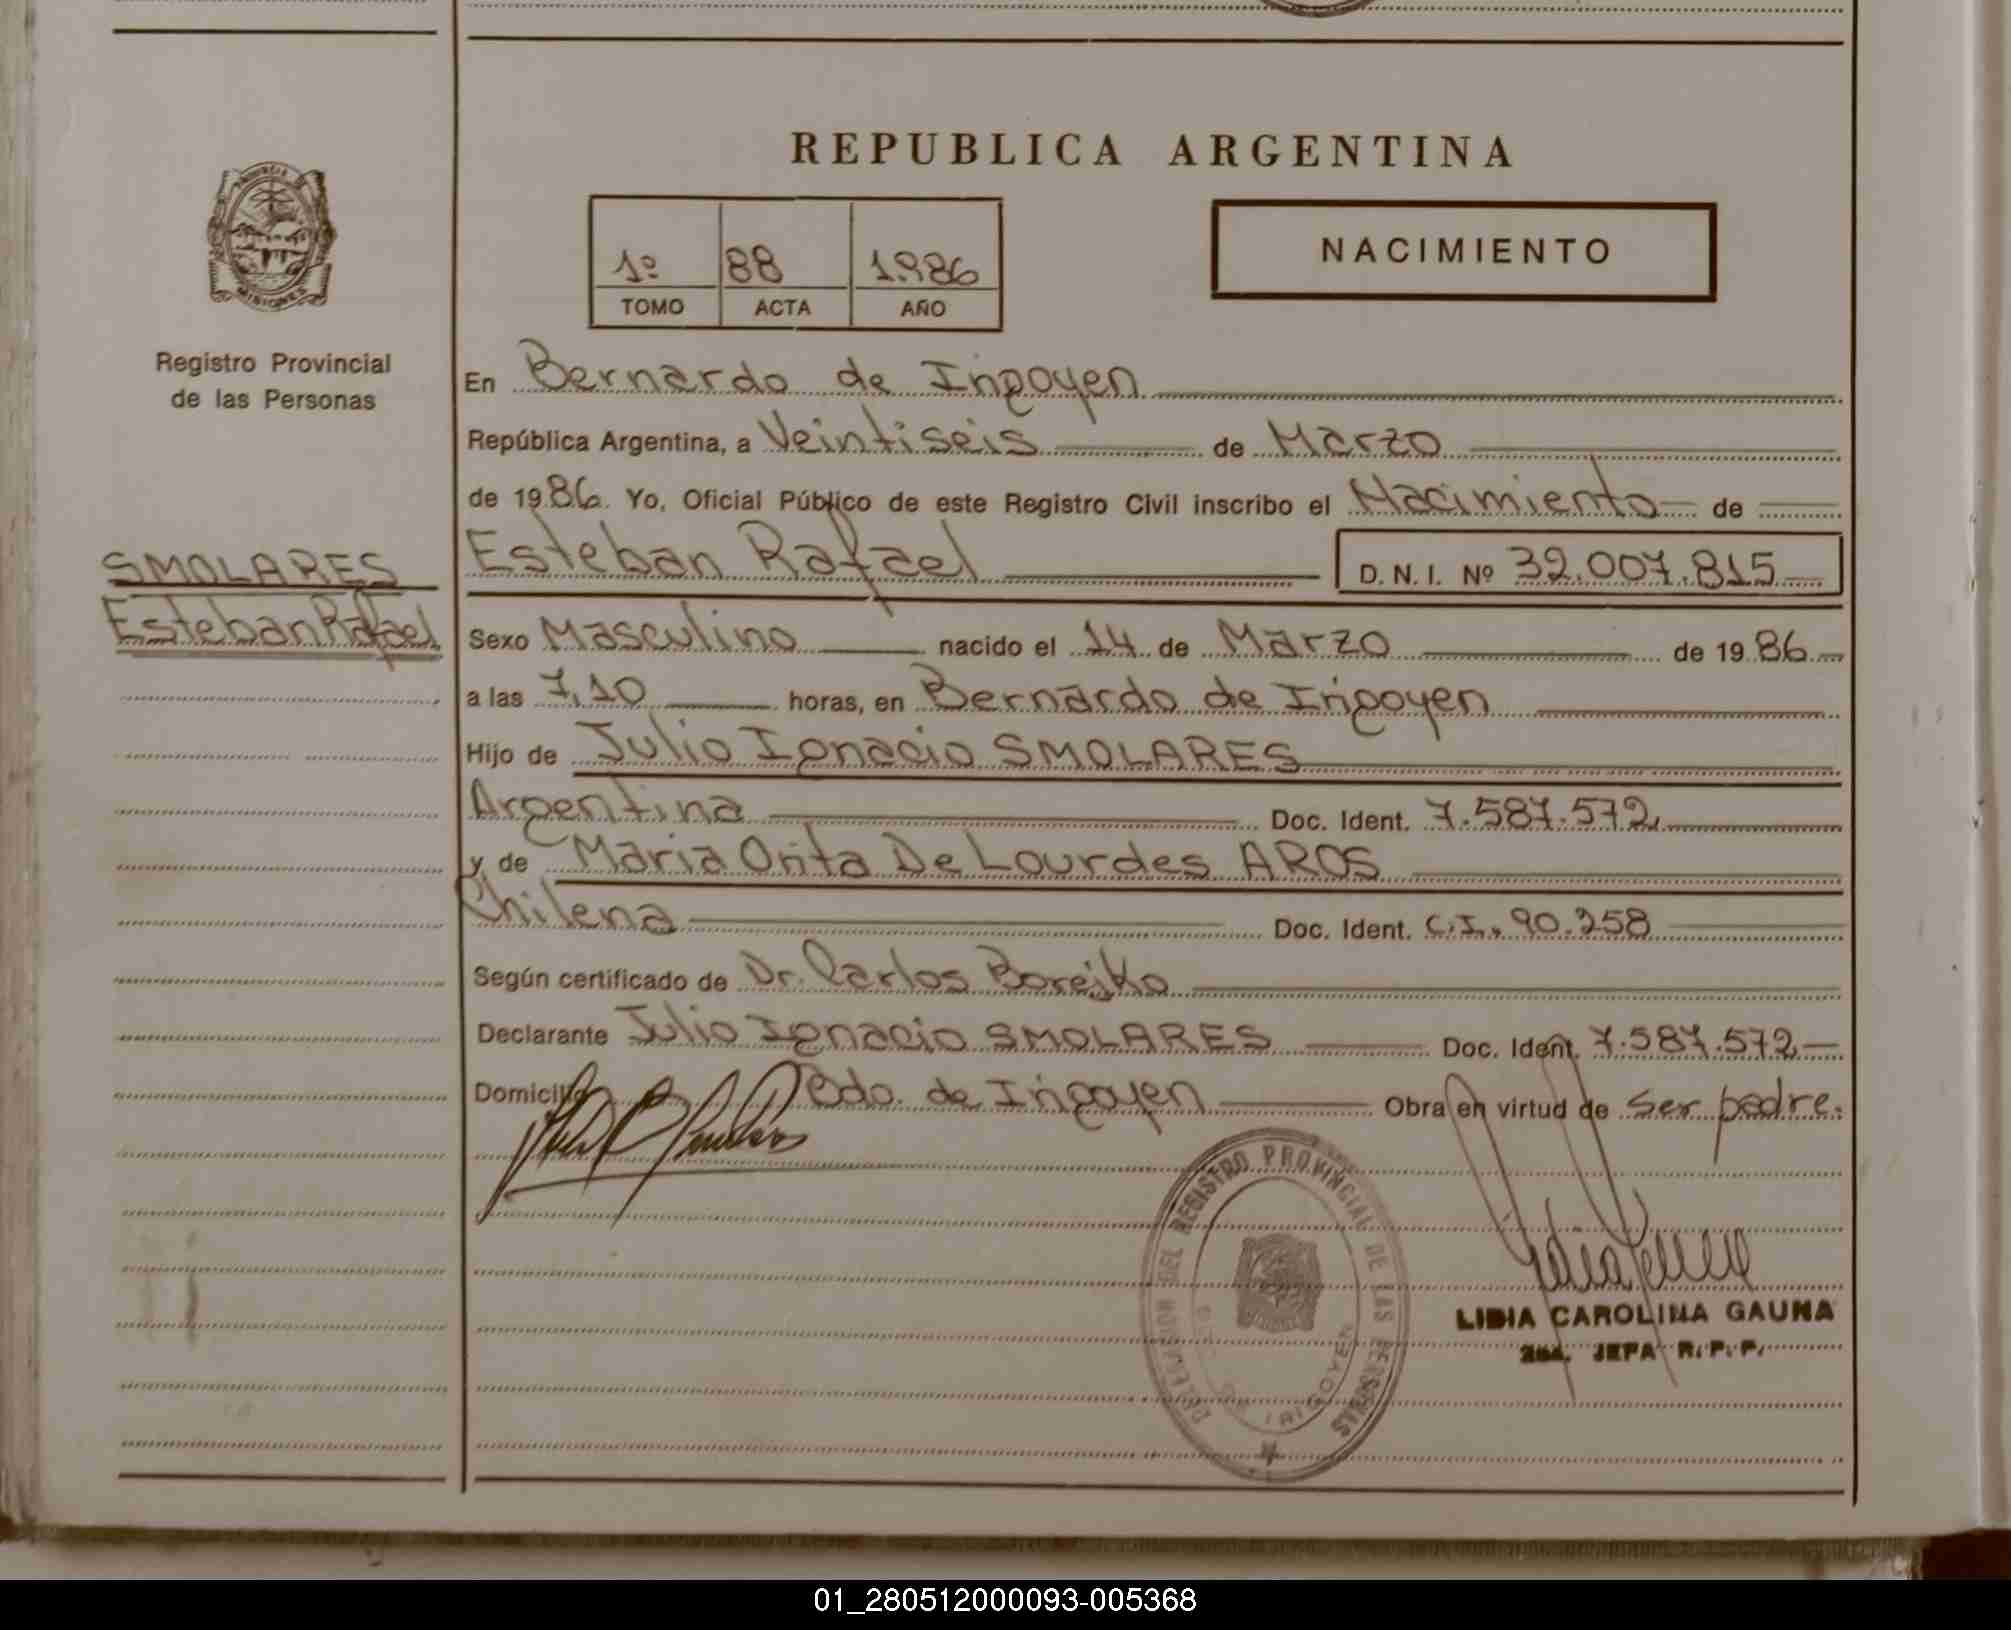 REPUBLICA ARGENTINA
1º 88 1986
TOMO ACTA AÑO
NACIMIENTO
PROVINCIA DE
MISIONES
Registro Provincial
de las Personas
SMOLARES
Esteban Rafael
En Bernardo de Irigoyen
República Argentina, a Veintiseis de Marzo
de 1986. Yo, Oficial Público de este Registro Civil inscribo el Nacimiento de
Esteban Rafael D. N. I. Nº 32.007.815
Sexo Masculino nacido el 14 de Marzo de 1986
a las 7,10 horas, en Bernardo de Irigoyen
Hijo de Julio Ignacio SMOLARES
Argentina Doc. Ident. 7.587.572
y de Maria Orita De Lourdes AROS
Chilena Doc. Ident. C.I. 90.258
Según certificado de Dr. Carlos Borejko
Declarante Julio Ignacio SMOLARES Doc. Ident. 7.587.572
Domicilio Bdo. de Irigoyen Obra en virtud de ser padre.
DELEGACION DEL REGISTRO PROVINCIAL DE LAS PERSONAS
BDO. DE IRIGOYEN
LIDIA CAROLINA GAUNA
2da. JEFA R. P. P.
01_280512000093-005368